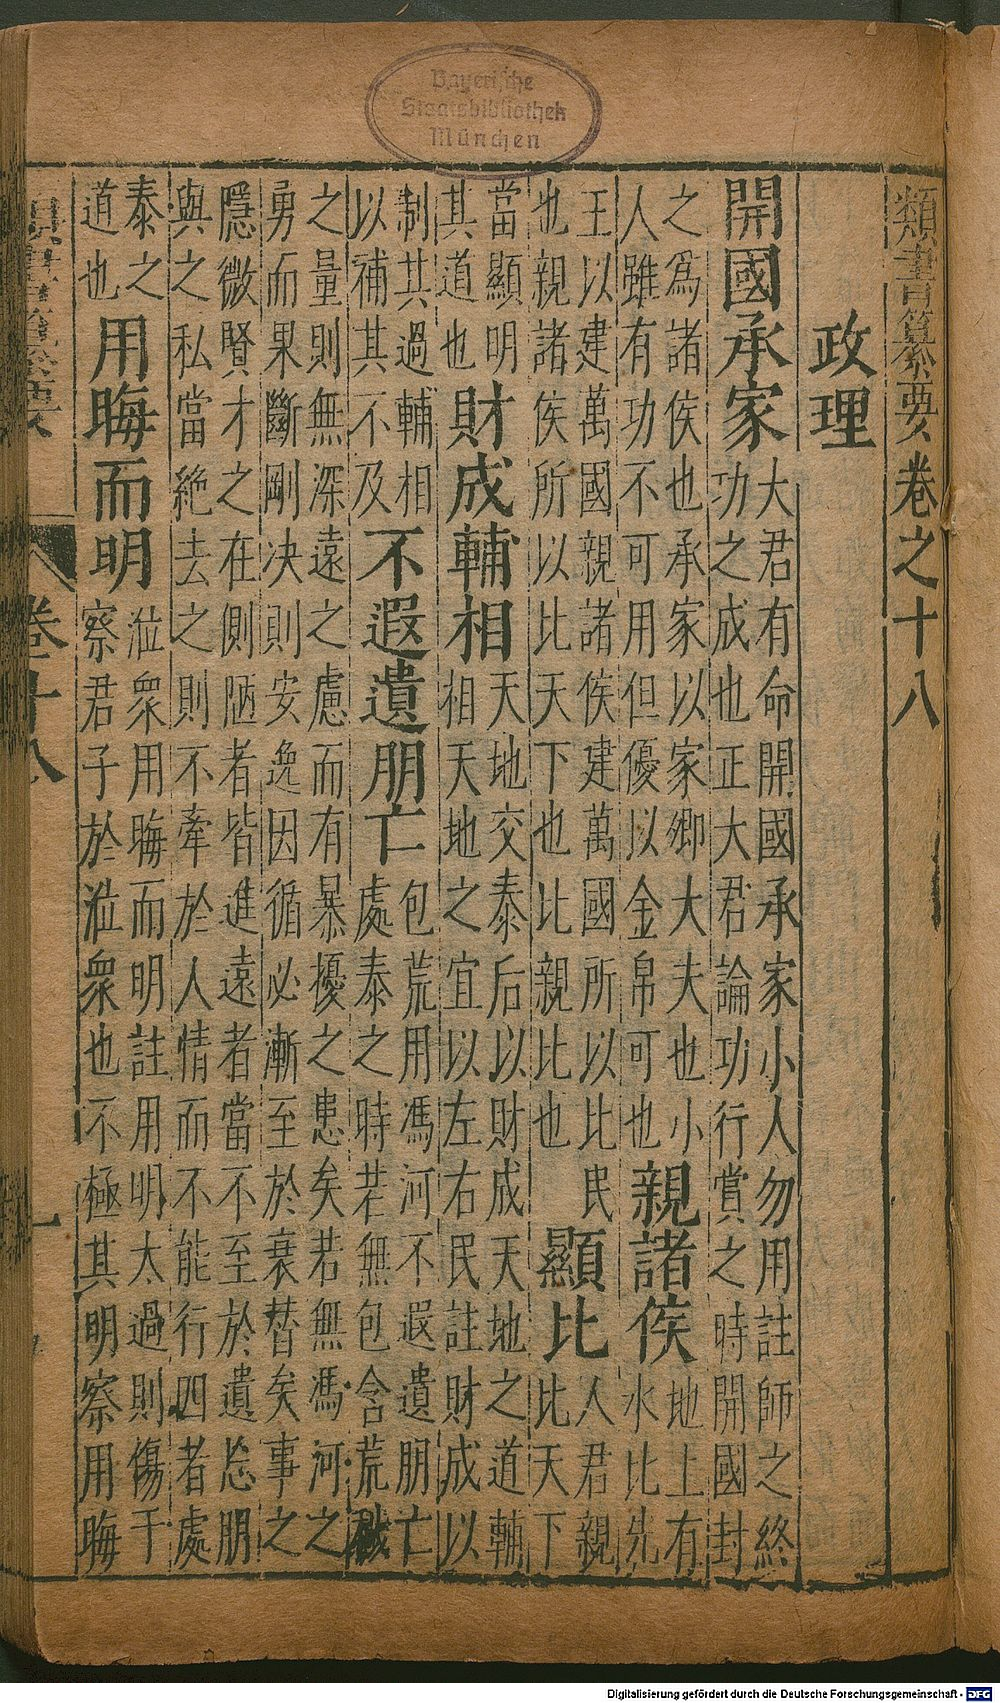 類書纂要卷之十八
政理
開國承家
大君有命開國承家小人勿用註師之終
功之成也正大君論功行賞之時開國封
之爲諸侯也承家以家卿大夫也小
人雖有功不可用但優以金帛可也
親諸侯
地上有
水比先
王以建萬國親諸侯建萬國所以比民
也親諸侯所以比天下也比親比也
顯比
人君親
比天下
當顯明
其道也
財成輔相
天地交泰后以財成天地之道輔
相天地之宜以左右民註財成以
制其過輔相
以補其不及
不遐遺朋亡
包荒用馮河不遐遺朋亡
處泰之時若無包含荒穢
之量則無深遠之慮而有暴擾之患矣若無馮河之
勇而果斷剛决則安逸因循必漸至於衰替矣事之
隱微賢才之在側陋者皆進遠者當不至於遺忘朋
與之私當絶去之則不牽於人情而不能行四者處
泰之
道也
用晦而明
蒞衆用晦而明註用明太過則傷于
察君子於蒞衆也不極其明察用晦
類書纂要
卷十八
一
Bayerische
Staatsbibliothek
München
Digitalisierung gefördert durch die Deutsche Forschungsgemeinschaft - DFG